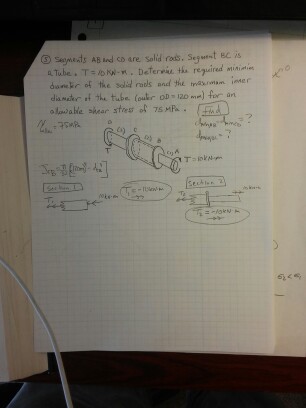 ③ Segments AB and CD are solid rods. Segment BC is
a tube. T = 10 kN-m. Determine the required minimum
diameter of the solid rods and the maximum inner
diameter of the tube (outer OD=120mm) for an
allowable shear stress of 75 MPa.
Find
= ?
= ?
= 75 MPa
D
(3) C
(2) B
(1) A
T
T = 10kN-m
Section 1
T₁ = -10kN-m
Section 2
T₂ = -10kN-m